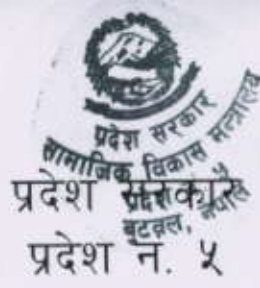 प्रदेश सरकार
सामाजिक विकास मन्त्रालय
बुटवल, नेपाल
प्रदेश सरकार
प्रदेश नं. ५